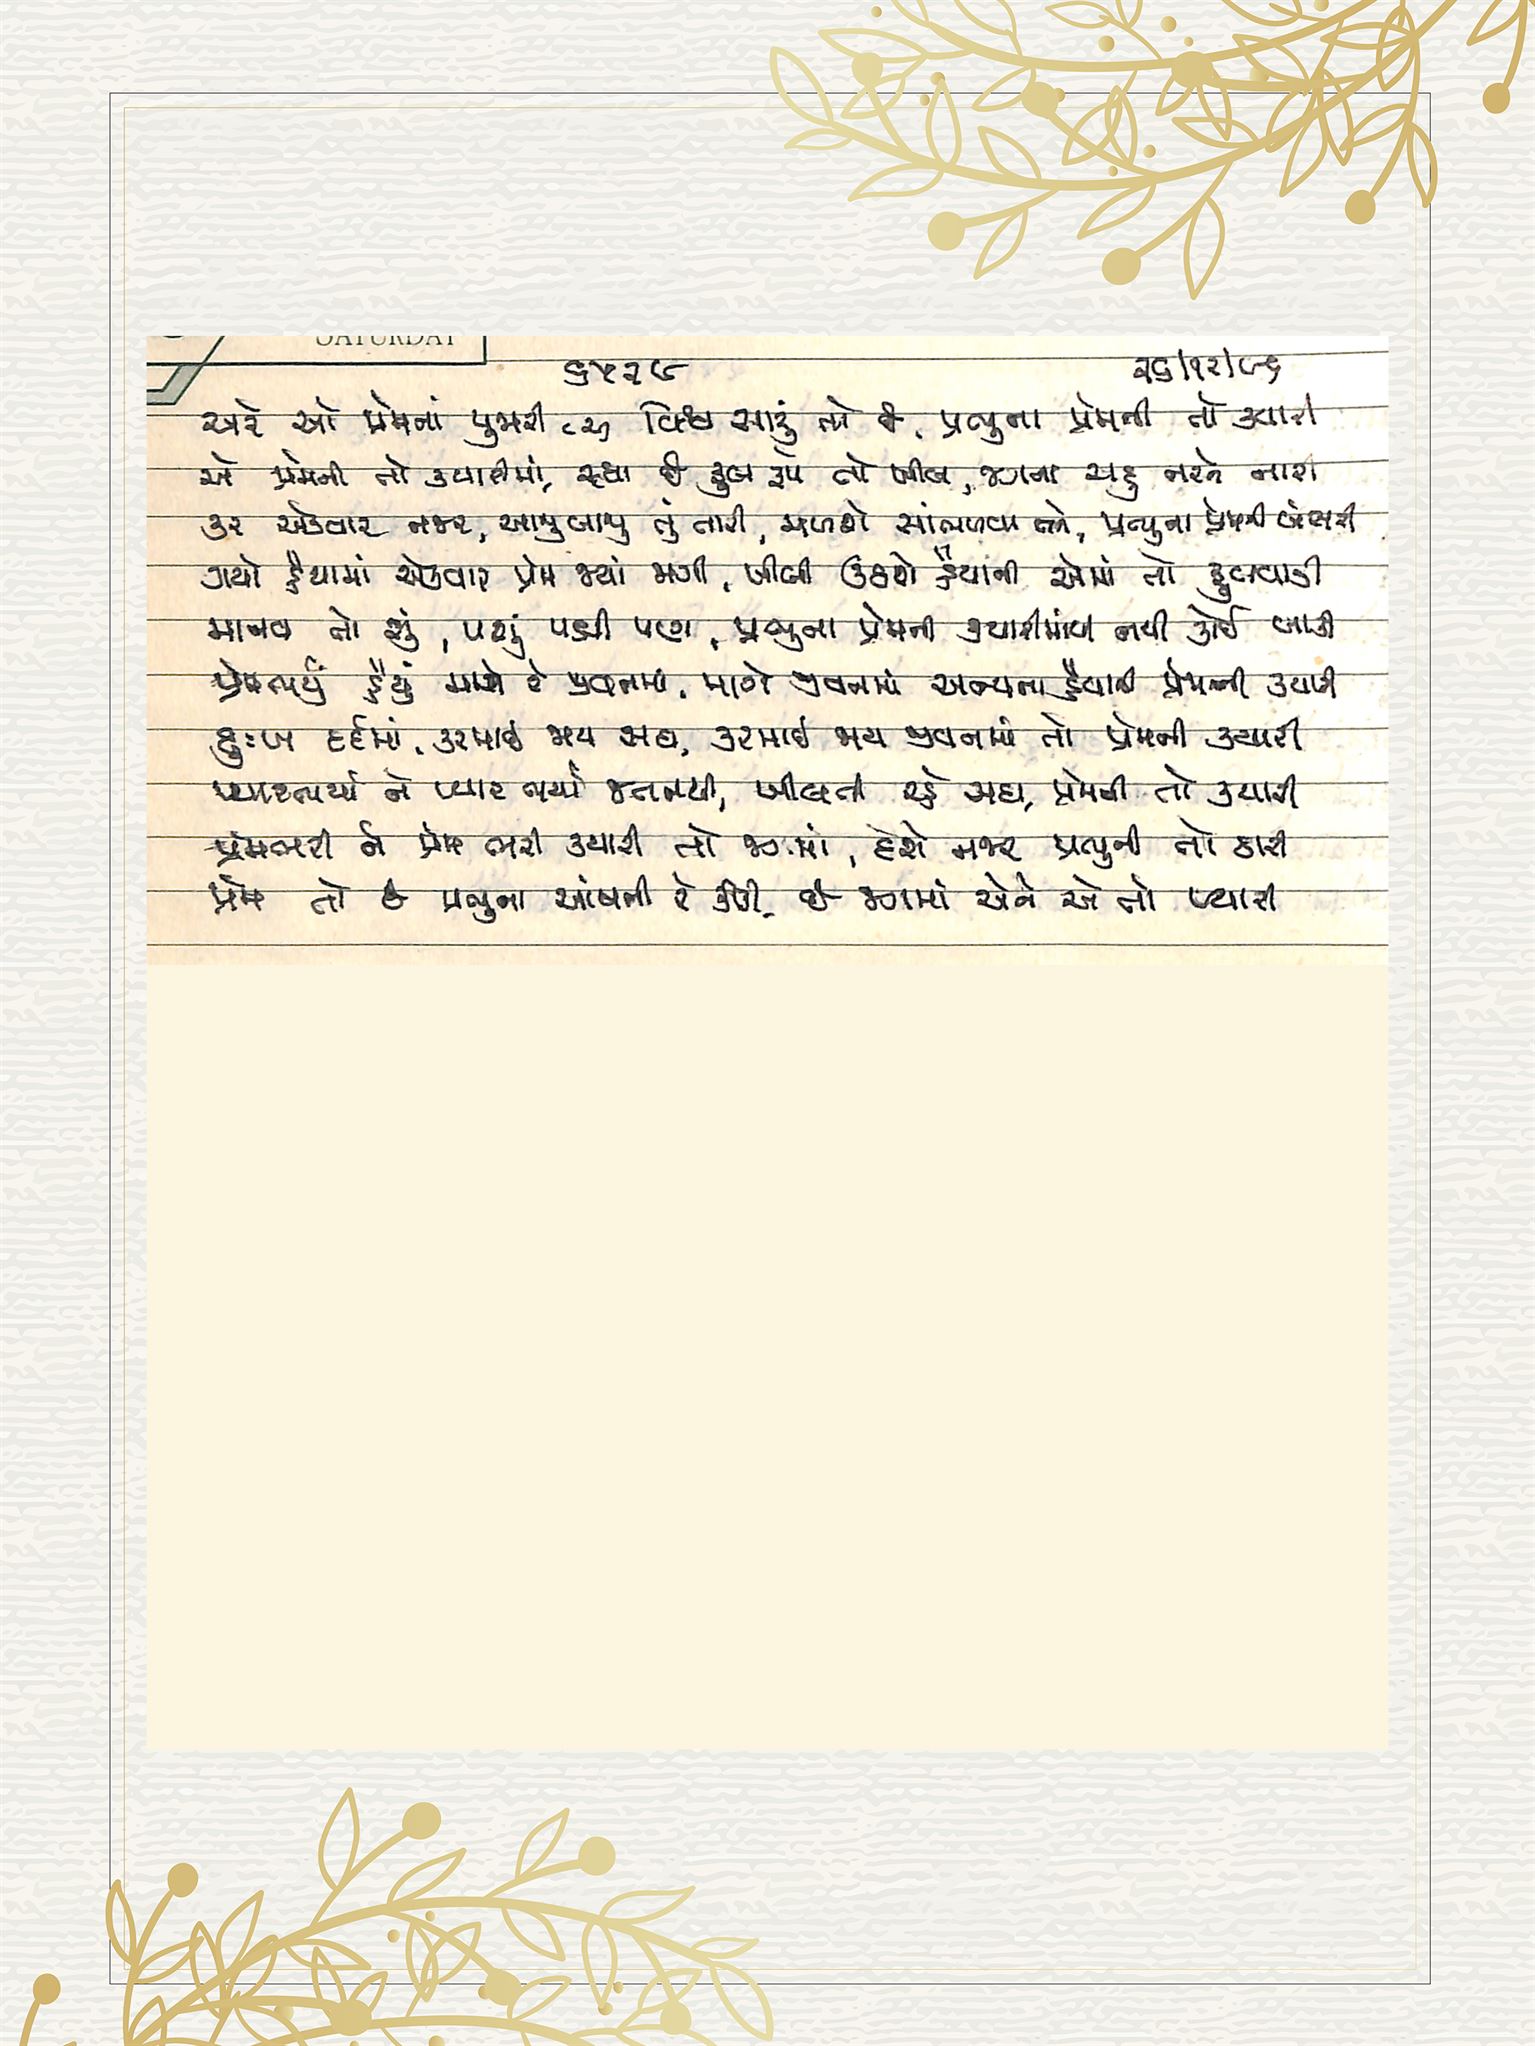 SATURDAY
૬૫૨૯ ૨૬/૧૨/૯૬
અરે ઓ પ્રેમનાં પુજારી વિશ્વ સારું તો છે, પ્રભુના પ્રેમની તો ક્યારી
એ પ્રેમની તો ક્યારીમાં, રહ્યા છે ફુલ રૂપે તો ખીલી, જગના સહુ નરને નારી
કર એકવાર નજર, આજુબાજુ તું તારી, મળશે સાંભળવા તને, પ્રભુના પ્રેમની બંસરી
ગયો હૈયામાં એકવાર પ્રેમ જ્યાં જાગી, ખીલી ઉઠશે હૈયાંની એમાં તો ફુલવાડી
માનવ તો શું, પશું પક્ષી પણ, પ્રભુના પ્રેમની ક્યારીમાંથી નથી કોઈ બાકી
પ્રેમભર્યું હૈયું માગે રે જીવનમાં, માગે જીવનમાં અન્યના હૈયાની પ્રેમની ક્યારી
દુઃખ દર્દમાં, કરમાઈ જાય સદા, કરમાઈ જાય જીવનમાં તો પ્રેમની ક્યારી
પ્યારભર્યા ને પ્યાર ભર્યા જતનથી, ખીલતી રહે સદા, પ્રેમની તો ક્યારી
પ્રેમભરી ને પ્રેમ ભરી ક્યારી તો જગમાં, દેશે નજર પ્રભુની તો ઠારી
પ્રેમ તો છે પ્રભુના આંખની રે કીકી, છે જગમાં એને એ તો પ્યારી